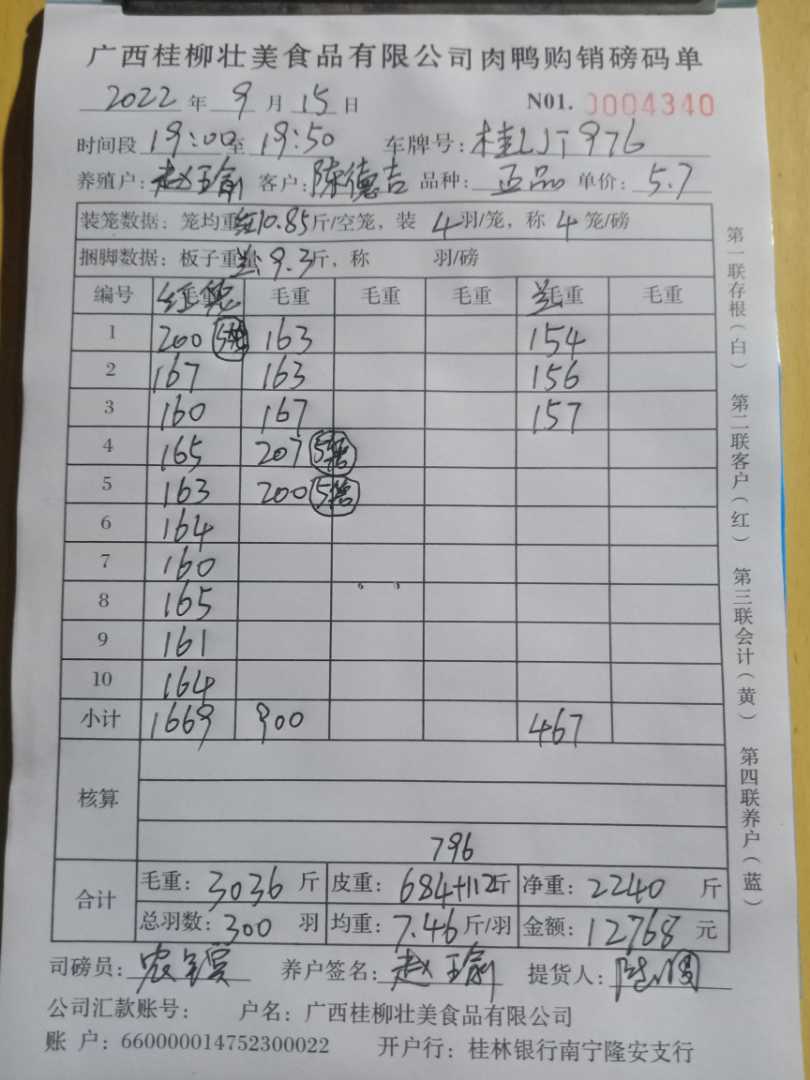 广西桂柳壮美食品有限公司肉鸭购销磅码单
2022年9月15日 N01.0004340
时间段19:00至19:50 车牌号:桂LJT976
养殖户:赵玉瑜 客户:陈德吉 品种:正品 单价:5.7
装笼数据:笼均重红10.85斤/空笼,装4羽/笼,称4笼/磅
捆脚数据:板子重兰9.3斤,称 羽/磅
编号 红笼毛重 毛重 毛重 毛重 兰毛重 毛重
1 200 5笼 163 154
2 167 163 156
3 160 167 157
4 165 207 5笼
5 163 200 5笼
6 164
7 160
8 165
9 161
10 164
小计 1669 900 467
核算
796
合计
毛重:3036斤 皮重:684+112斤 净重:2240斤
总羽数:300羽 均重:7.46斤/羽 金额:12768元
司磅员: 养户签名:赵玉瑜 提货人:
公司汇款账号: 户名:广西桂柳壮美食品有限公司
账户:660000014752300022 开户行:桂林银行南宁隆安支行
第一联存根(白) 第二联客户(红) 第三联会计(黄) 第四联养户(蓝)